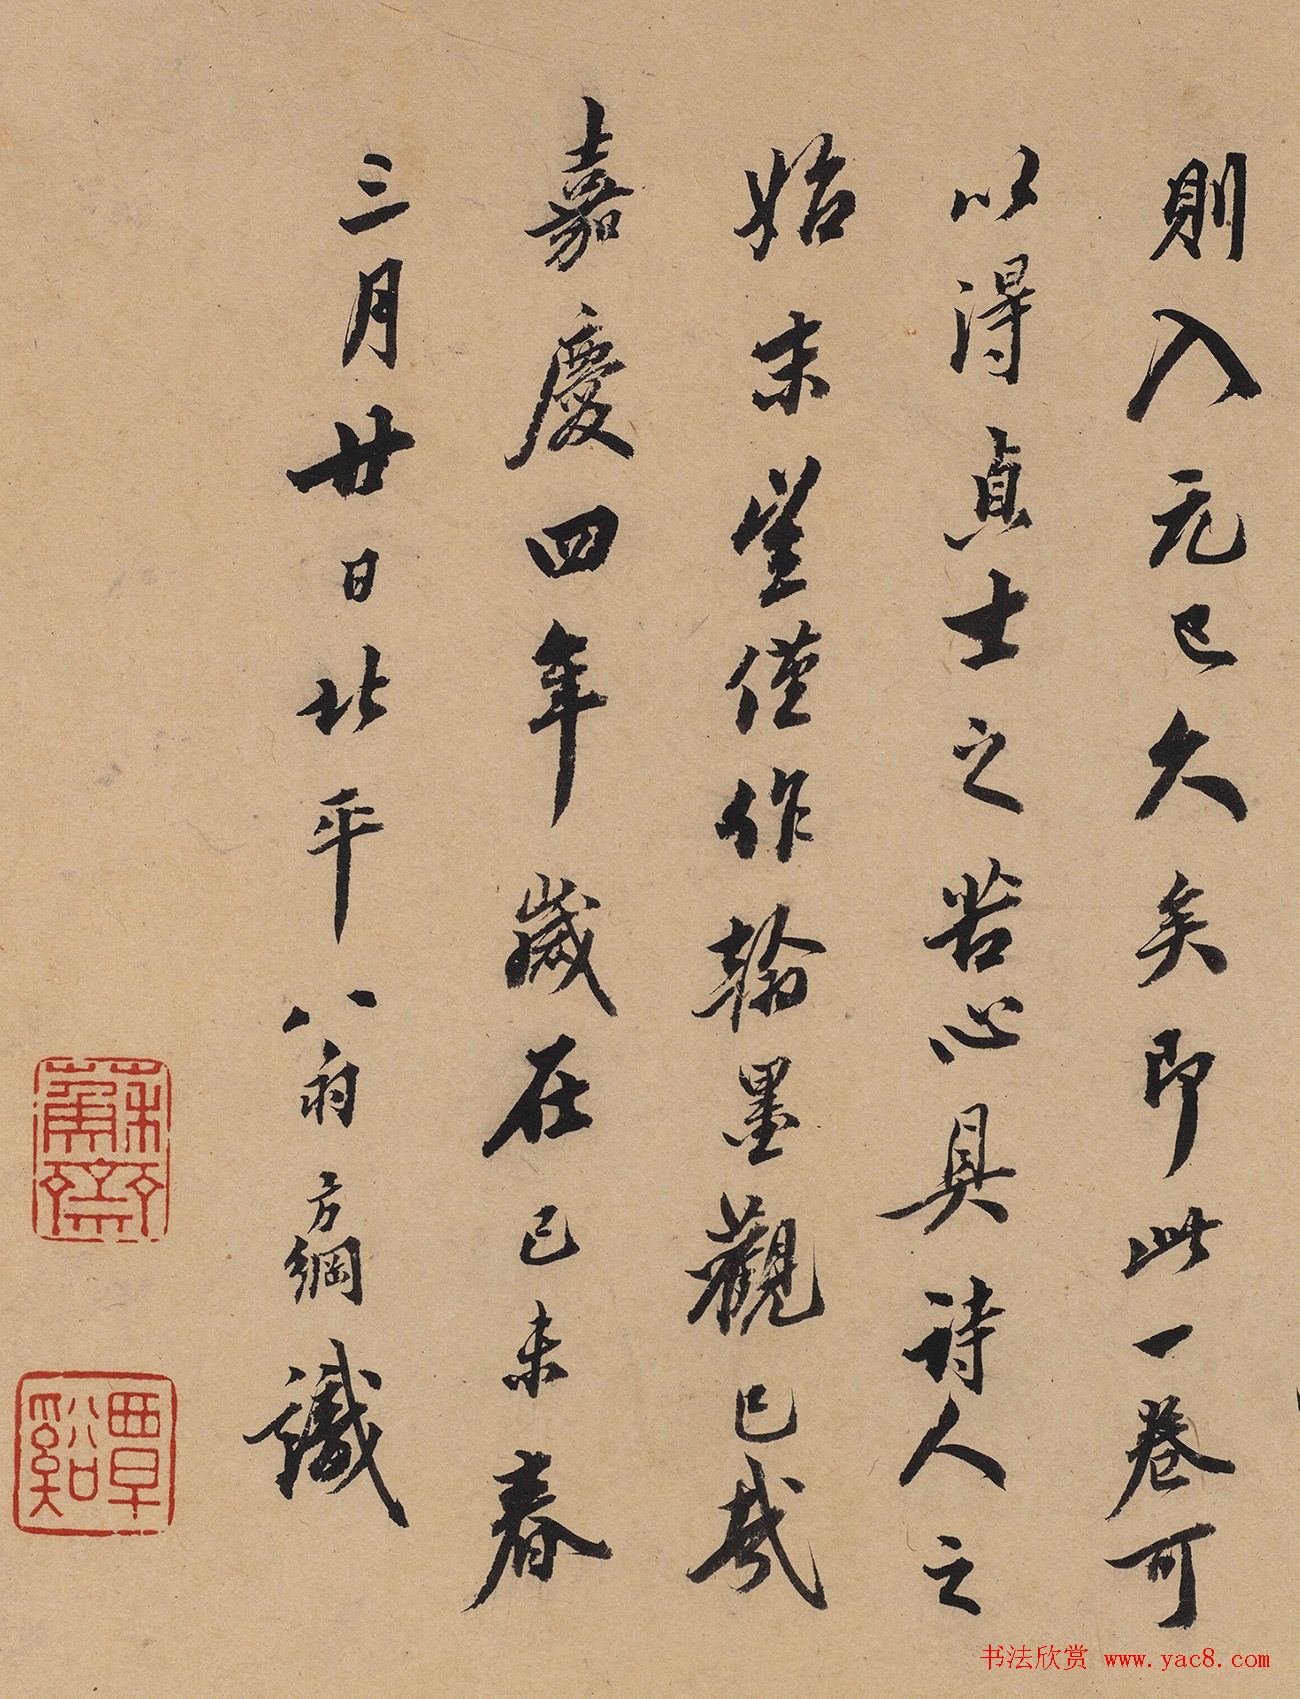 則入元已久矣即此一卷可
以得貞士之苦心具詩人之
始末豈僅作翰墨觀已哉
嘉慶四年歲在己未春
三月廿日北平翁方綱識
蘇齋
覃谿
书法欣赏 www.yac8.com